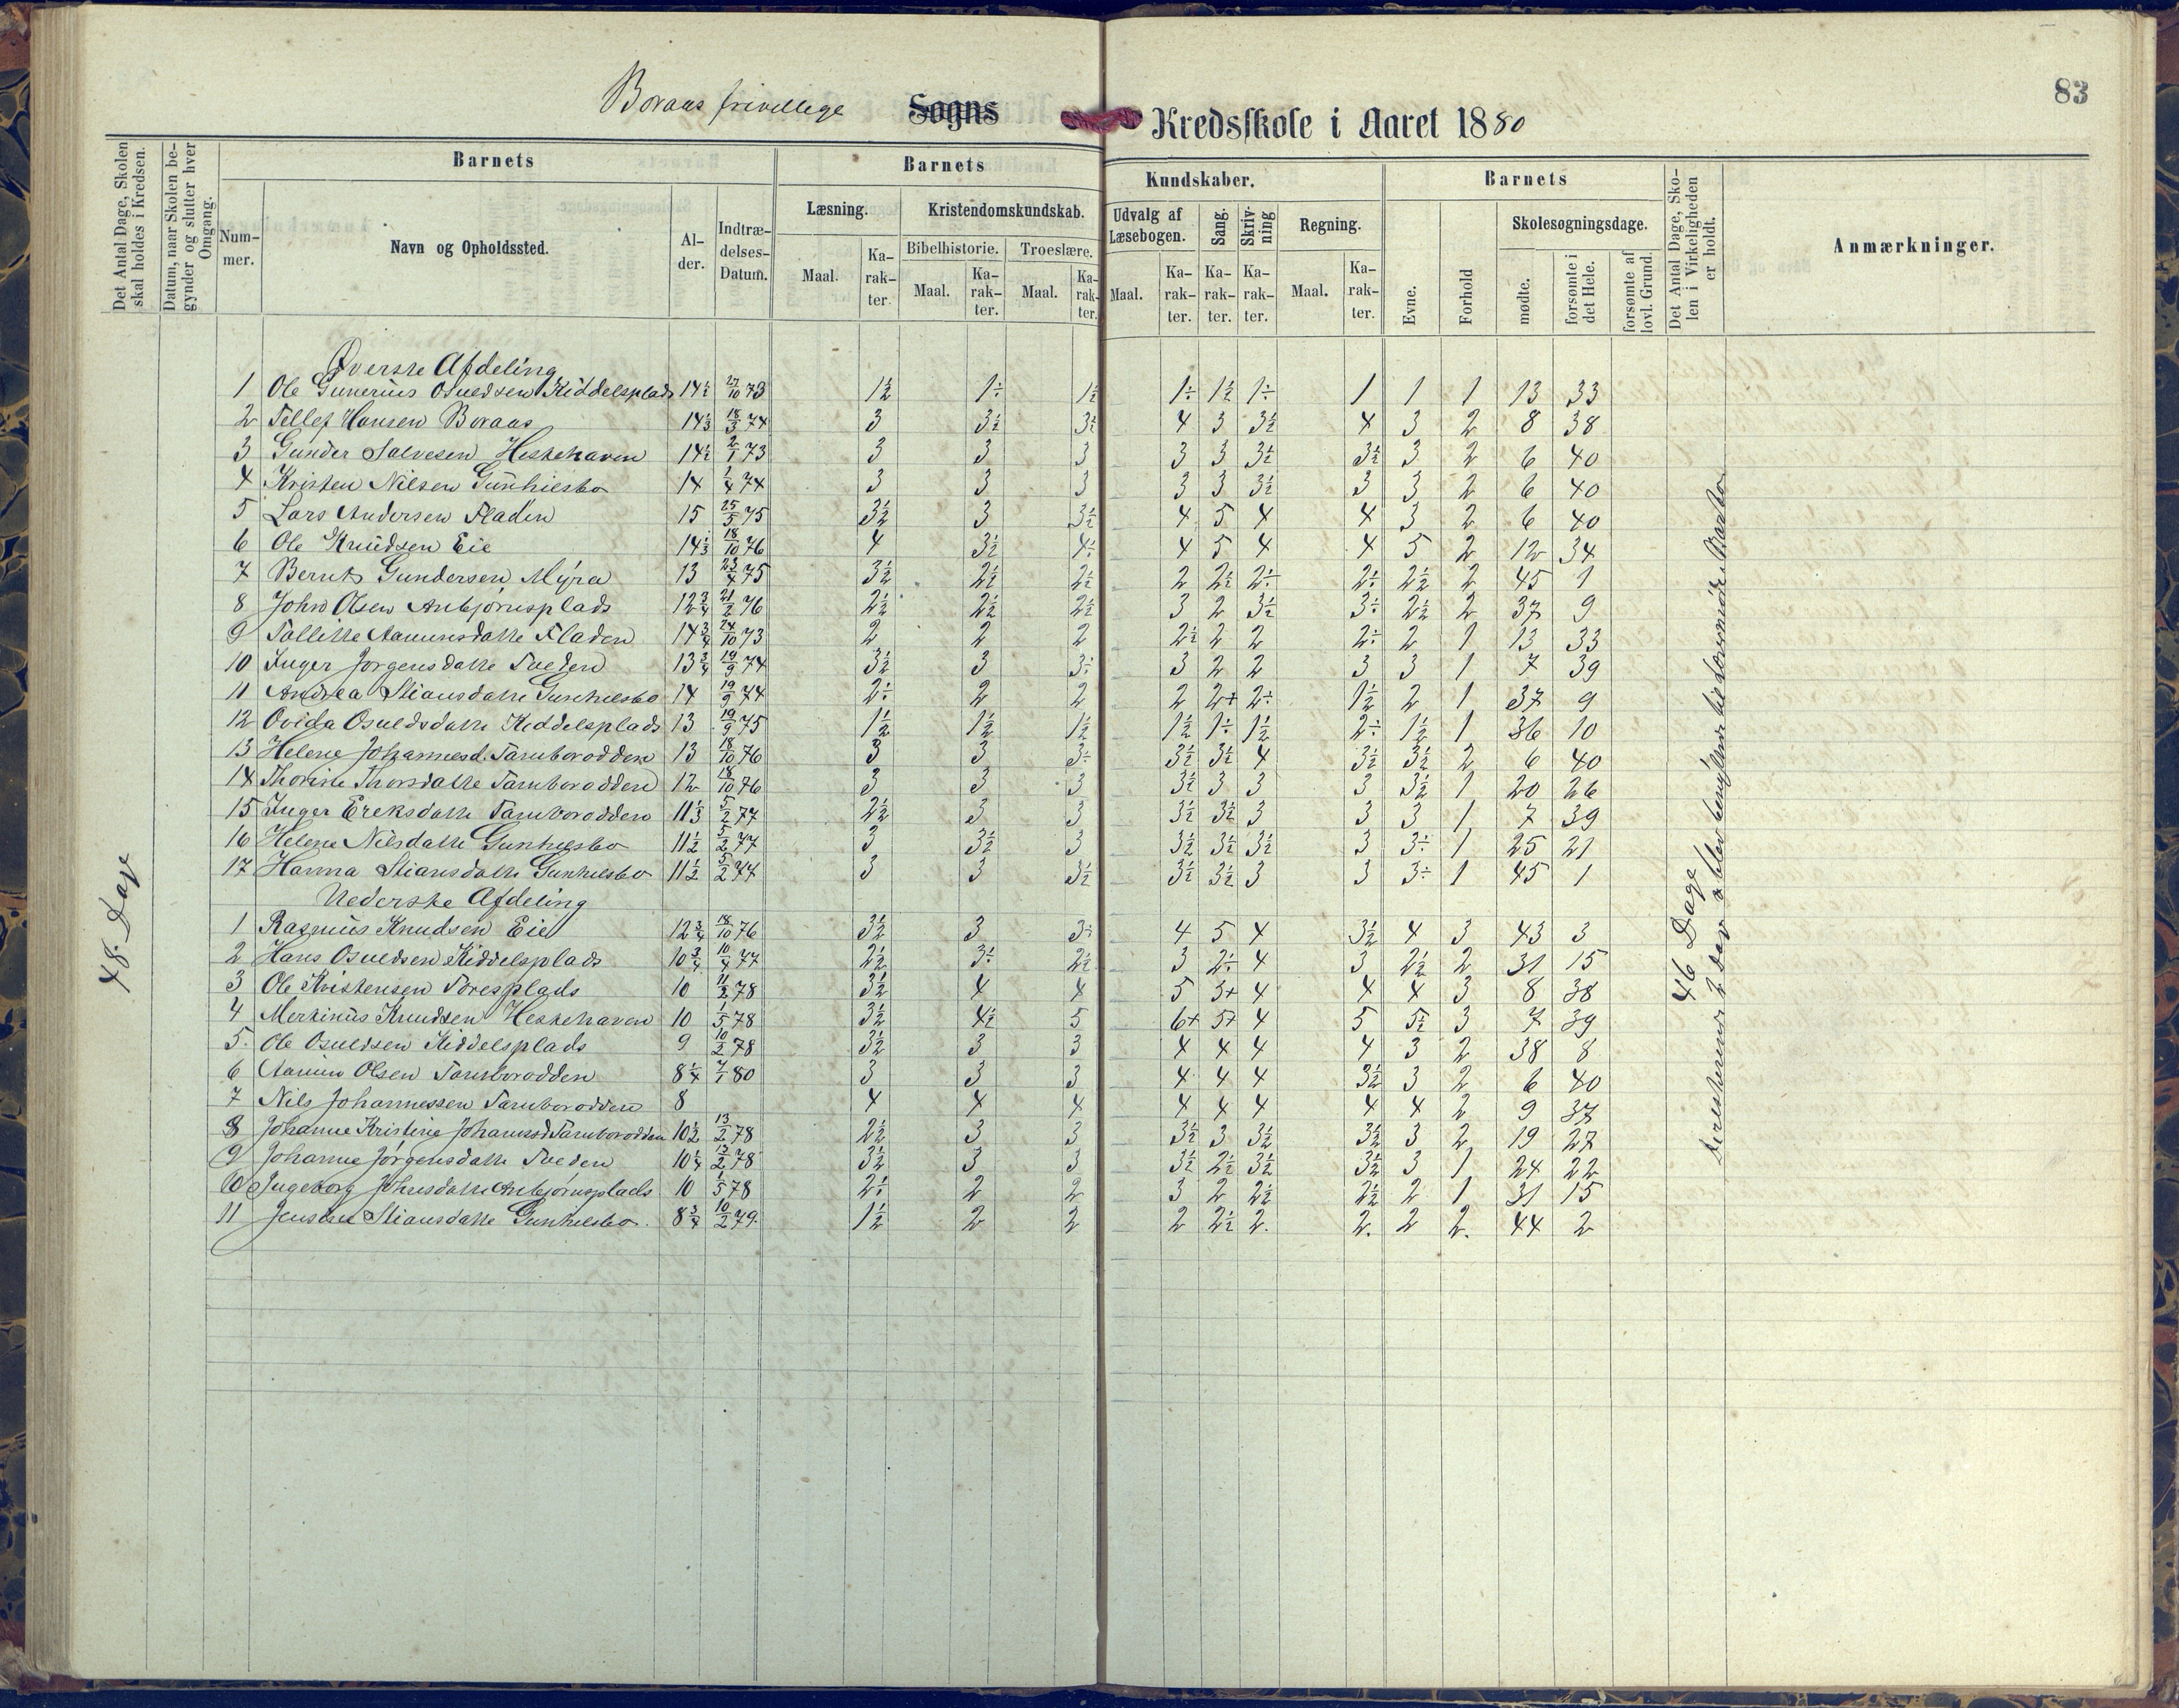 83
Boraas frivillege Sogns Kredsskole i Aaret 1880
Det Antal Dage, Skolen skal holdes i Kredsen.
Datum, naar Skolen begynder og slutter hver Omgang.
Barnets
Nummer.
Navn og Opholdssted.
Alder.
Indtrædelses-Datum.
Barnets Kundskaber.
Læsning.
Maal. Karakter.
Kristendomskundskab.
Bibelhistorie. Troeslære.
Maal. Karakter. Maal. Karakter.
Udvalg af Læsebogen. Sang. Skrivning Regning.
Maal. Karakter. Karakter. Karakter. Maal. Karakter.
Barnets
Evne. Forhold
Skolesøgningsdage.
mødte. forsømte i det Hele. forsømte af lovl. Grund.
Det Antal Dage, Skolen i Virkeligheden er holdt.
Anmærkninger.
48 Dage
Øverste Afdeling
1 Ole Gunerius Osuldsen Kiddelsplads 14½ 27/10 73 1½ 1÷ 1½ 1÷ 1½ 1÷ 1 1 1 13 33
2 Tellef Hansen Boraas 14⅓ 18/3 74 3 3½ 3½ 4 3 3½ 4 3 2 8 38
3 Gunder Salvesen Heskehaven 14½ 2/1 73 3 3 3 3 3 3½ 3½ 3 2 6 40
4 Kristen Nilsen Gunhilsbo 14 2/4 74 3 3 3 3 3 3½ 3 3 2 6 40
5 Lars Andersen Fladen 15 25/5 75 3½ 3 3½ 4 5 4 4 3 2 6 40
6 Ole Knudsen Eie 14⅓ 18/10 76 4 3½ 4÷ 4 5 4 4 5 2 12 34
7 Bernt Gundersen Myra 13 23/4 75 3½ 2½ 2½ 2 2½ 2÷ 2÷ 2½ 2 45 1
8 John Olsen Anbjørnsplads 12¾ 21/2 76 2½ 2½ 2½ 3 2 3½ 3÷ 2½ 2 37 9
9 Tallette Aamunsdatte Fladen 14¾ 24/10 73 2 2 2 2½ 2 2 2÷ 2 1 13 33
10 Inger Jørgensdatte Tveden 13¾ 19/9 74 3½ 3 3÷ 3 2 2 3 3 1 7 39
11 Andrea Stiansdatte Gunhilsbo 14 19/9 74 2÷ 2 2 2 2+ 2÷ 1½ 2 1 37 9
12 Ovida Osuldsdatte Kiddelsplads 13 19/9 75 1½ 1½ 1½ 1½ 1÷ 1½ 2÷ 1½ 1 36 10
13 Helene Johannesd. Tamborodden 13 18/10 76 3 3 3÷ 3½ 3½ 4 3½ 3½ 2 6 40
14 Thorine Thorsdatte Tamborodden 12 18/10 76 3 3 3 3½ 3 3 3 3½ 1 20 26
15 Inger Ereksdatte Tamborodden 11⅓ 5/2 77 2½ 3 3 3½ 3½ 3 3 3 1 7 39
16 Helene Nilsdatte Gunhilsbo 11½ 5/2 77 3 3½ 3 3½ 3½ 3½ 3 3÷ 1 25 21
17 Hanna Stiansdatte Gunhilsbo 11½ 5/2 77 3 3 3½ 3½ 3½ 3 3 3÷ 1 45 1
Nederste Afdeling
1 Rasmus Knudsen Eie 12¾ 18/10 76 3½ 3 3÷ 4 5 4 3½ 4 3 43 3
2 Hans Osuldsen Kiddelsplads 10¾ 10/4 77 2½ 3÷ 2½ 3 2÷ 4 3 2½ 2 31 15
3 Ole Kristensen Toresplads 10 11/2 78 3½ 4 4 5 3+ 4 4 4 3 8 38
4 Merkinus Knudsen Heskehaven 10 1/5 78 3½ 4½ 5 6+ 5+ 4 5 5½ 3 7 39
5. Ole Osuldsen Kiddelsplads 9 10/2 78 3½ 3 3 4 4 4 4 3 2 38 8
6 Aanun Olsen Tamborodden 8¼ 7/1 80 3 3 3 4 4 4 3½ 3 2 6 40
7 Nils Johannessen Tamborodden 8 4 4 4 4 4 4 4 4 2 9 37
8 Johanne Kristine Johannsd Tamborodden 10½ 13/2 78 2½ 3 3 3½ 3 3½ 3½ 3 2 19 27
9 Johanne Jørgensdatte Tveden 10¼ 13/2 78 3½ 3 3 3½ 2½ 3½ 3½ 3 1 24 22
10 Ingeborg Johnsdatte Anbjørnsplads 10 1/5 78 2÷ 2 2 3 2 2½ 2½ 2 1 31 15
11 Jensine Stiansdatte Gunhilsbo. 8¾ 10/2 79. 1½ 2 2 2 2½ 2. 2. 2 2. 44 2
46 Dage